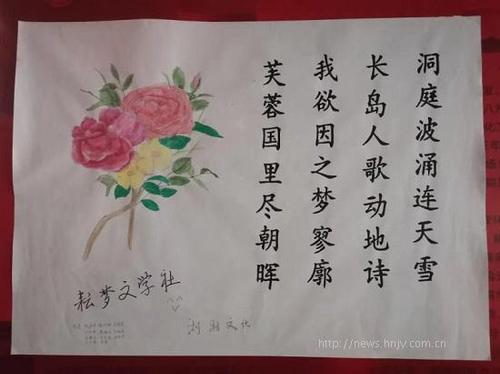 洞庭波涌连天雪
长岛人歌动地诗
我欲因之梦寥廓
芙蓉国里尽朝晖
耘梦文学社
http://news.hnjy.com.cn